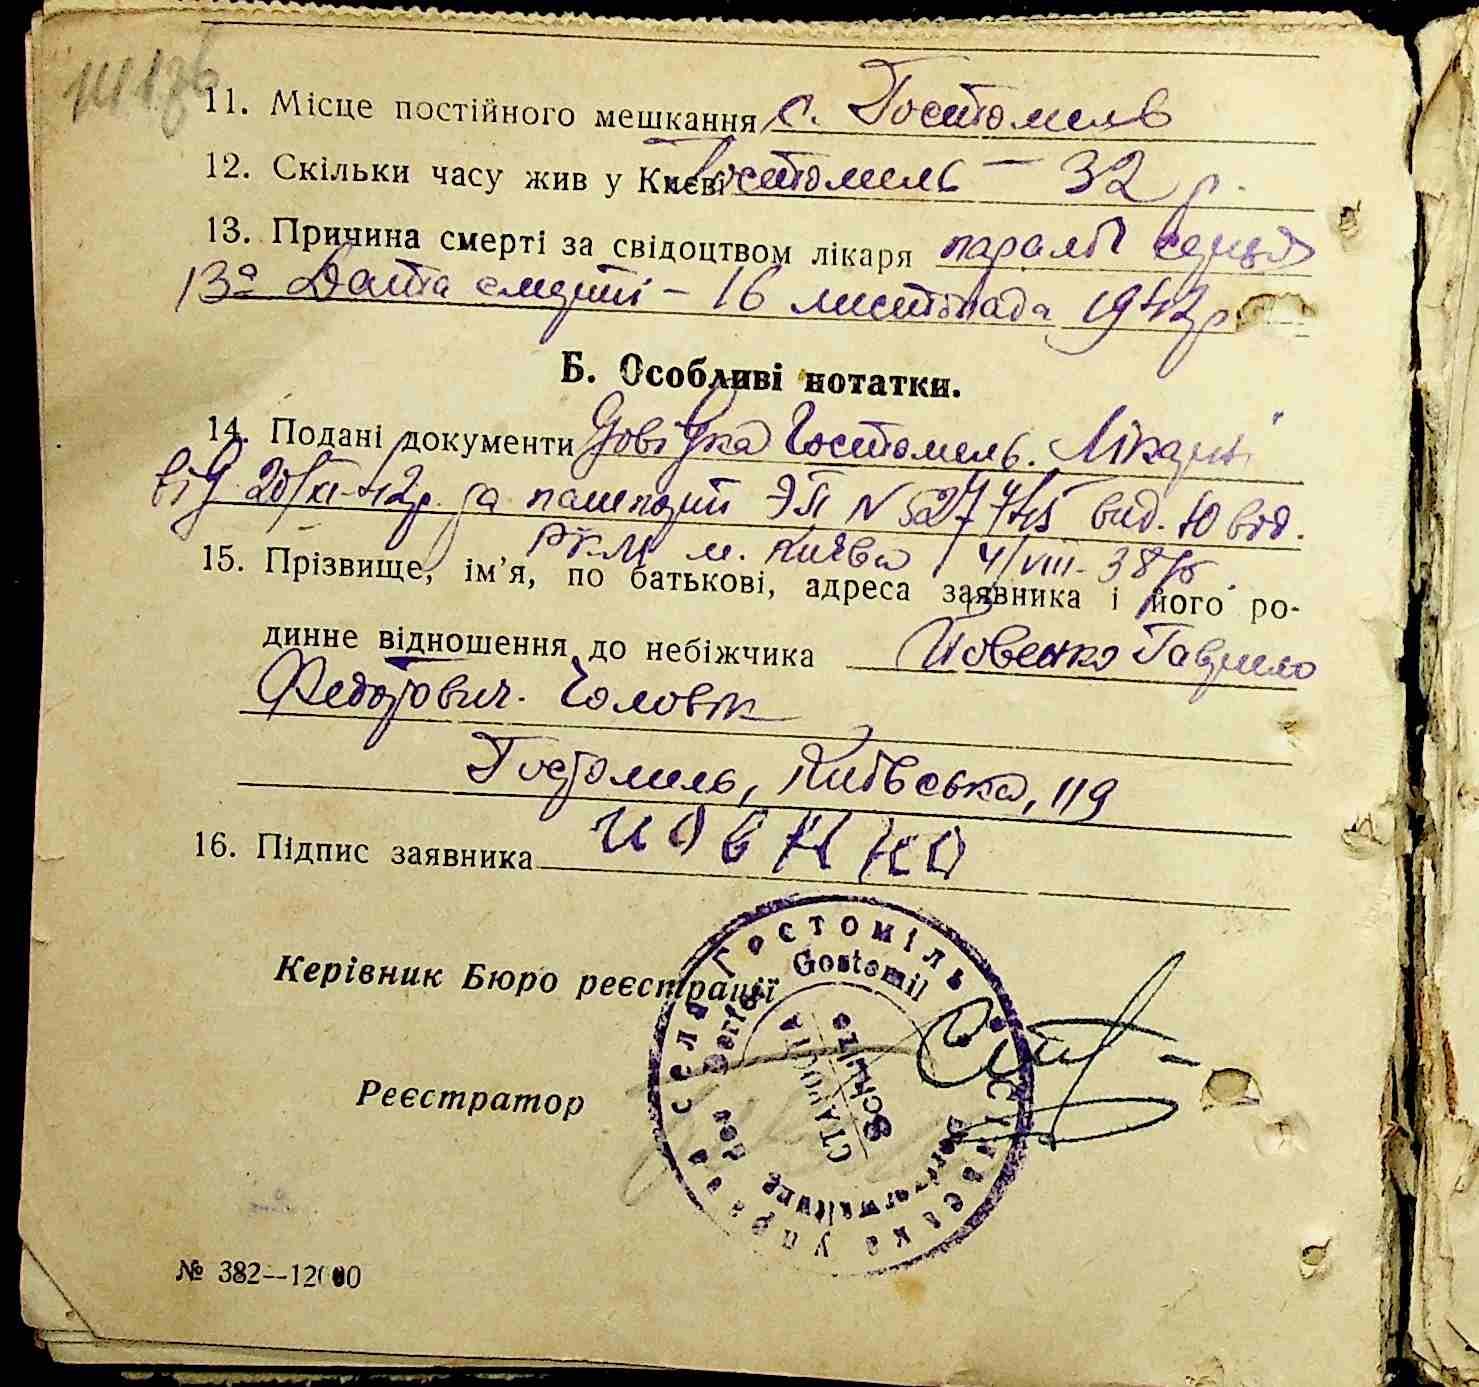 11. Місце постійного мешкання с. Гостомель
12. Скільки часу жив у Києві Гостомель – 32 р.
13. Причина смерті за свідоцтвом лікаря параліч серця
13а Дата смерті – 16 листопада 1942 р.
Б. Особливі нотатки.
14. Подані документи Довідка Гостомель. Лікарні
від 20/XI-42р. за паспорт ЭП № 527745 вид. 10 від.
РКМ м. Києва 4/VIII-38р.
15. Прізвище, ім’я, по батькові, адреса заявника і його ро-
динне відношення до небіжчика Йовенко Гаврило
Федотович. Чоловік
Гостомель, Київська, 119
16. Підпис заявника
Керівник Бюро реєстрації
Реєстратор
Сільська управа села Гостоміль
Dorfverwaltung des Dorfes Gostomil
СТАРОСТА
Schulze
№ 382—12000